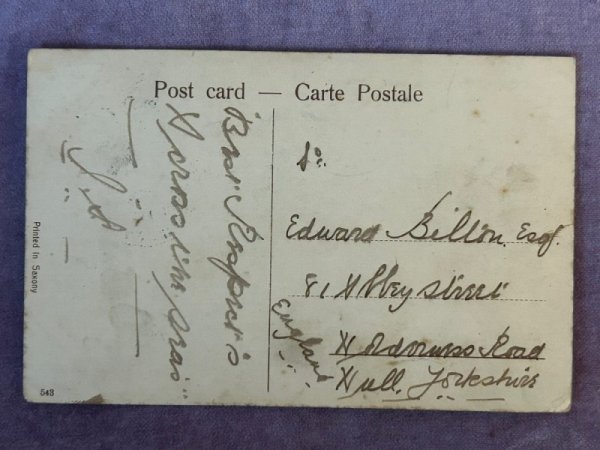 Post card — Carte Postale
To
Edward Billon Esq.
81 Abbey Street
Holderness Road
Hull. Yorkshire
England
Best
J. S.
Printed in Saxony
543